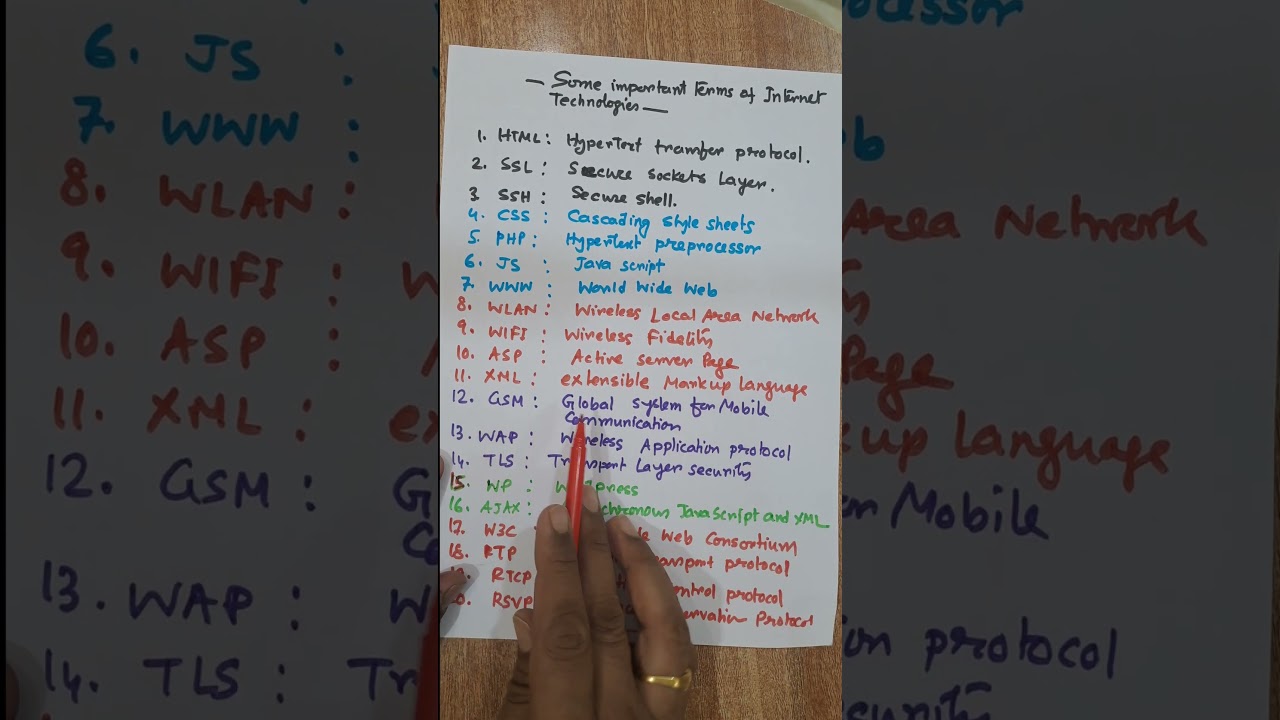 — Some important Terms of Internet
Technologies —
1. HTML : HyperText transfer protocol.
2. SSL : Secure Sockets Layer.
3 SSH : Secure shell.
4. CSS : Cascading style sheets
5. PHP : Hypertext preprocessor
6. JS : Java script
7. WWW : World Wide Web
8. WLAN : Wireless Local Area Network
9. WIFI : Wireless Fidelity
10. ASP : Active server Page
11. XML : extensible Markup Language
12. GSM : Global system for Mobile
Communication
13. WAP : Wireless Application protocol
14. TLS : Transport Layer security
15. WP :
16. AJAX : Javascript and XML
17. W3C Web Consortium
18. RTP transport protocol
RTCP control protocol
RSVP Protocol
6. JS :
7. WWW :
8. WLAN :
9. WIFI :
10. ASP :
11. XML :
12. GSM :
13. WAP :
14. TLS :
Area Network
Page
Language
Mobile
protocol